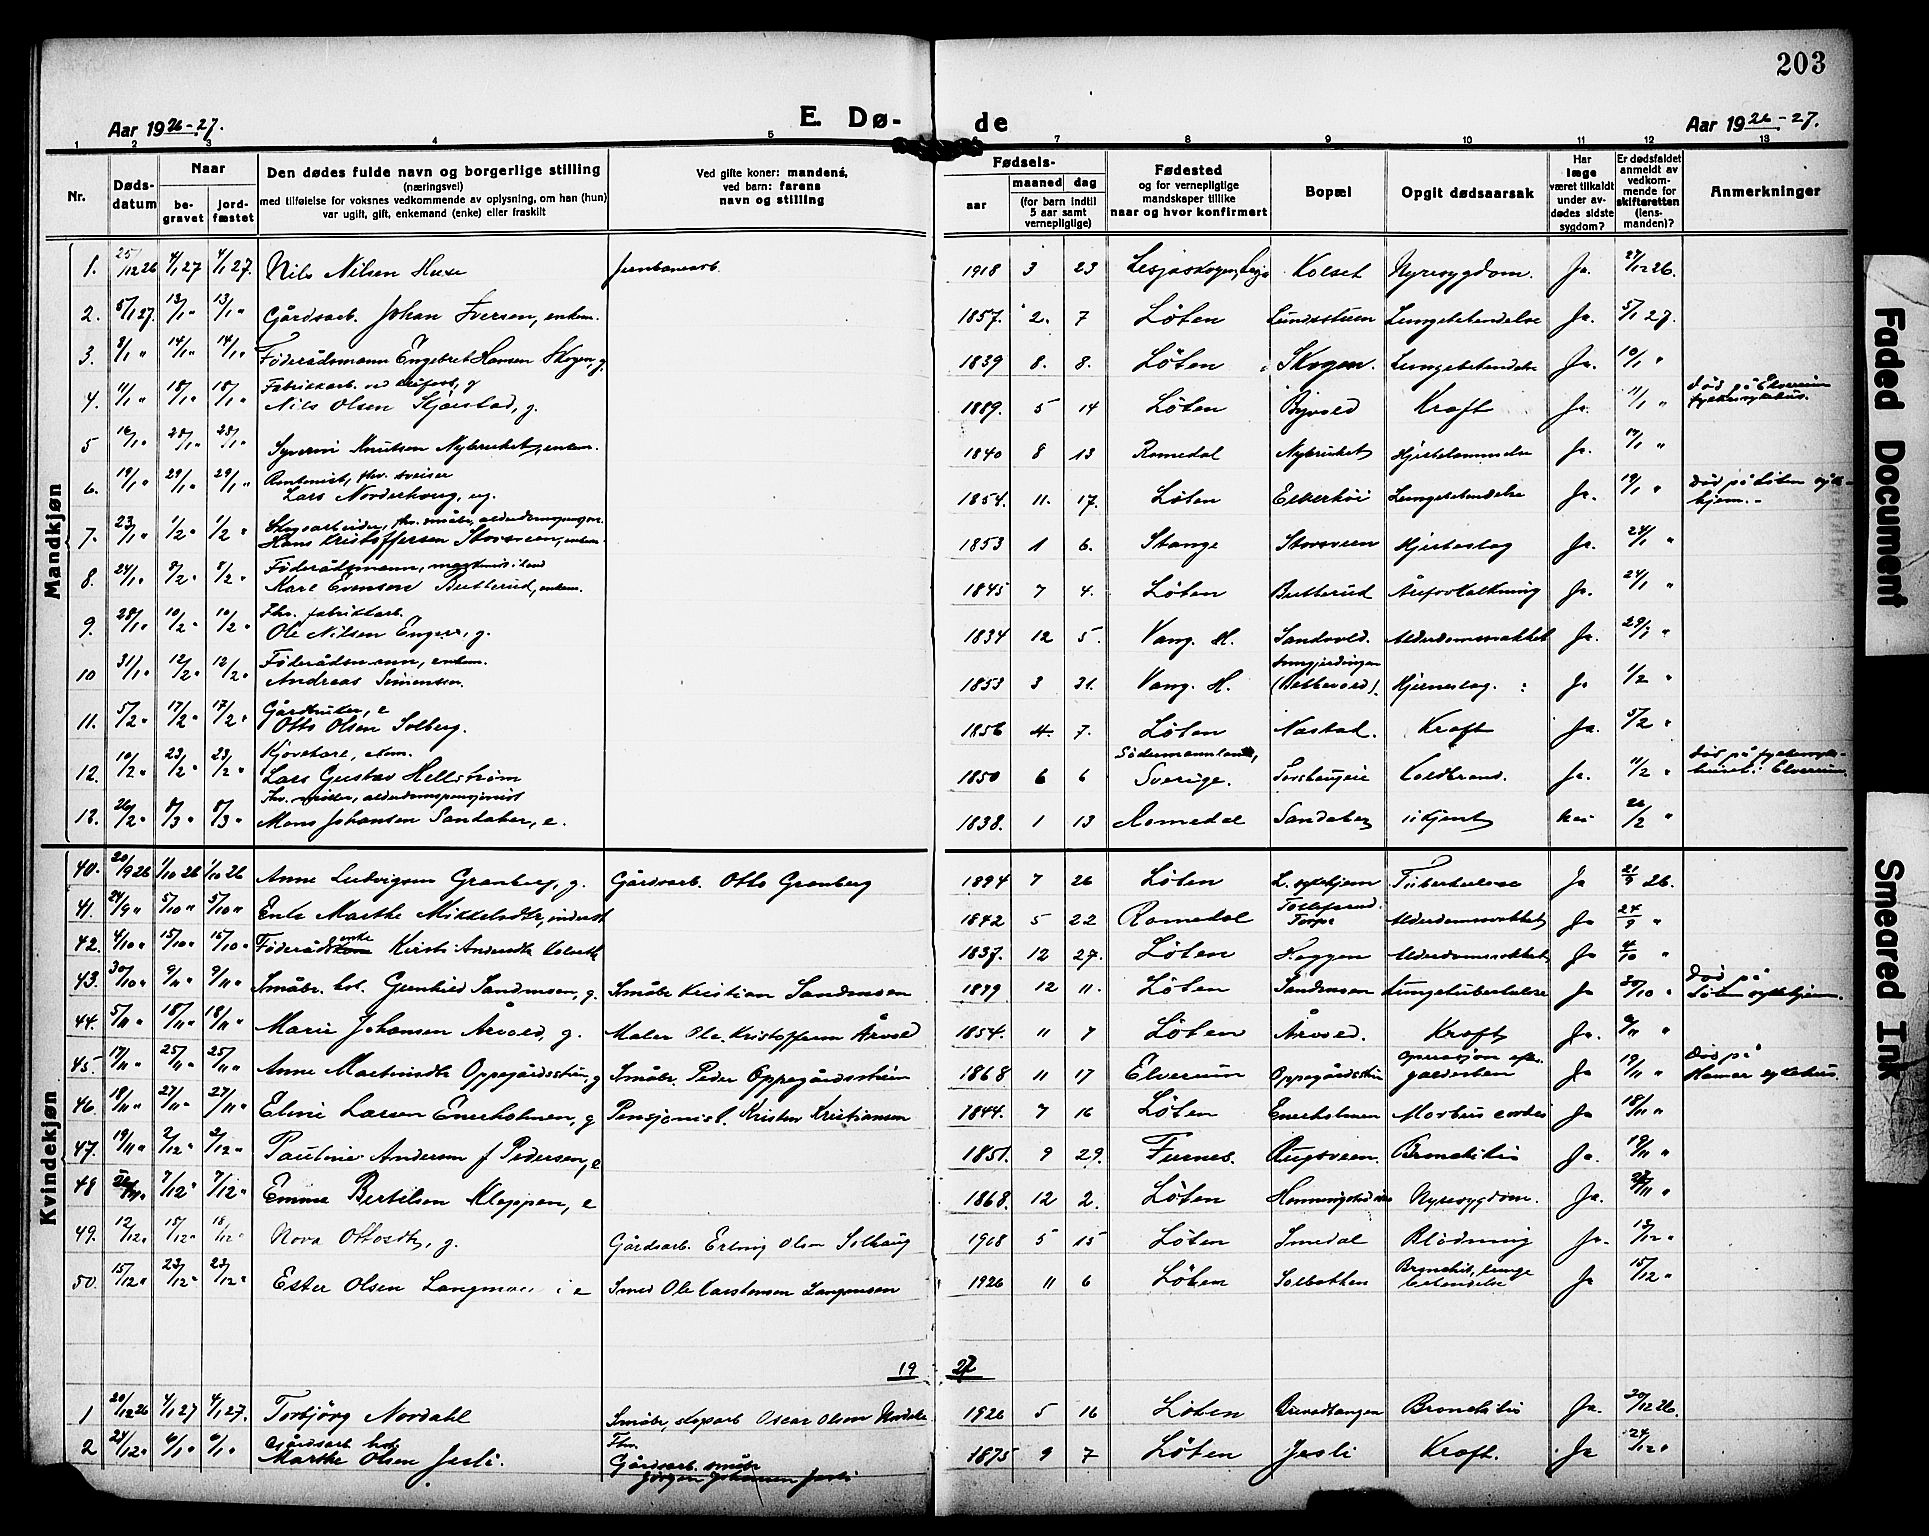 203
Aar 1926-27. E. Dø- de Aar 1926-27.
1 2 3 4 5 6 7 8 9 10 11 12 13
Nr. Dødsdatum Naar begravet jordfæstet Den dødes fulde navn og borgerlige stilling (næringsvei) med tilføielse for voksnes vedkommende av oplysning, om han (hun) var ugift, gift, enkemand (enke) eller fraskilt Ved gifte koner: mandens, ved barn: farens navn og stilling Fødsels- aar maaned dag (for barn indtil 5 aar samt vernepligtige) Fødested og for vernepligtige mandskaper tillike naar og hvor konfirmert Bopæl Opgit dødsaarsak Har læge været tilkaldt under avdødes sidste sygdom? Er dødsfaldet anmeldt av vedkommende for skifteretten (lensmanden)? Anmerkninger
Mandkjøn
1. 25/12 26 4/1 27 4/1 27. Nils Nilsen jernbanearb. 1918 3 23 Kolset Nyresygdom. Ja. 27/12 26.
2. 5/1 27. 13/1 " 13/1 " Gårdsarb. Johan Iversen, enkem. 1857. 2. 7 Løten Lundsstuen Lungebetendelse Ja. 5/1 27.
3. 8/1 " 14/1 " 14/1 " Føderådsmann Engebret Hansen Skogen, g. 1839 8. 8. Løten Skogen. Lungebetendelse Ja. 10/1 "
4. 11/1 " 18/1 " 18/1 " Fabrikkarb. g Nils Olsen Skjærstad, g. 1889. 5 14 Løten Byvold Kræft Ja. 11/1 " Død på Elverum fylkessykehus.
5 16/1 " 28/1 " 28/1 " Syverin Knutsen Nybrucket, enkem. 1840 8 13 Romedal Nybrucket Hjertelammelse Ja. 17/1 "
6. 19/1 " 29/1 " 29/1 " Rentenist, fhv. sveiser Lars Norderhaug, ug. 1854. 11. 17. Løten Lungebetendelse Ja. 19/1 " Død på Løten sykehjem.
7. 23/1 " 1/2 " 1/2 " Skogsarbeider, fhv. småbr, alderdomspensjon. Hans Kristoffersen Storsveen, enkem. 1853 1 6. Stange Storsveen Hjerteslag Ja. 24/1 "
8. 24/1 " 8/2 " 8/2 " Føderådsmann, Karl Evensen Butterud, enkem. 1845 7 4. Løten Butterud Åreforkalkning Ja. 24/1 "
9. 28/1 " 10/2 " 10/2 " Fhv. fabrikkarb. Ole Nilsen Engen, g. 1834 12 5. Vang. H. Sandvold. Alderdomssvakhet Ja. 29/1 "
10 31/1 " 12/2 " 12/2 " Føderådsmann, enkem. Andreas Simensen. 1853 3 31. Vang. H. Hjerneslag. Ja 1/2 "
11. 5/2 " 17/2 " 17/2 " Gårdbruker, e Otto Olsen Solberg. 1856 4. 7. Løten Nastad. Kræft Ja. 5/2 "
12. 10/2 " 23/2 " 23/2 " Lars Gustav Hellstrøm 1850 6 6 Södermannland, Sverige. Koldbrand. Ja. 11/2 " Død på fylkessykehuset i Elverum.
13. 26/2 " 8/3 " 8/3 " Fhv. møller, alderdomspensjonist Mons Johansen Sandaker, e. 1838. 1 13 Romedal Sandaker ukjent Nei 26/2 "
Kvindekjøn
40. 20/9 26 1/10 26 1/10 26 Anne Ludvigsen Granberg, g. Gårdsarb. Otto Granberg 1894 7 26 Løten L. sykehjem Tuberkulose Ja 21/9 26.
41. 24/9 " 5/10 " 5/10 " Enke Marthe Mikkelsdtr, inderst 1842 5 22 Romedal Alderdomssvakhet Ja 24/9 "
42. 4/10 " 15/10 " 15/10 " Føderådsenke Kirsti Andersdtr 1837. 12 27. Løten Alderdomssvakhet Ja 4/10 "
43. 30/10 " 9/11 " 9/11 " Småbr. kol. Gunhild Sandmoen, g. Småbr Kristian Sandmoen 1899 12 11. Løten Sandmoen Lungetuberkulose Ja 30/10 " Død på Løten sykehjem.
44. 5/11 " 18/11 " 18/11 " Marie Johansen Årvold, g. Maler Ole Kristoffersen Årvold 1854. 11 7 Løten Årvold. Kræft Ja. 6/11 "
45. 17/11 " 25/11 " 25/11 " Anne Martinsdtr Oppegårdsstuen, g Småbr. Peder Oppegårdsstuen 1868 11 17 Elverum Oppegårdsstuen Operasjon for galdesten Ja 19/11 " Død på Hamar sykehus.
46. 18/11 " 27/11 " 27/11 " Eline Larsen Enerholmen, g Pensjonist. Kristen Kristiansen 1844. 7 16 Løten Enerholmen Morbus cordis Ja 18/11 "
47. 19/11 " 2/12 " 2/12 " Pauline Andersen f Pedersen, e 1851. 9 29. Furnes. Rugsveen. Bronchitis Ja. 19/11 "
48 26/11 " 7/12 " 7/12 " Emma Bertilsen Kloppen, e 1868. 12 2. Løten Nyresygdom. Ja. 27/11 "
49. 12/12 " 15/12 " 18/12 " Nora Ottosdtr, g. Gårdsarb. Erling Olsen Solhaug 1908 5 15 Løten Smedal Blødning Ja. 13/12 "
50. 15/12 " 23/12 " 23/12 " Ester Olsen Langmoen Smed Ole Karstensen Langmoen 1926 11 6 Løten Solbakken Bronchit, lungebetendelse Ja 15/12 "
19 27
1 20/12 26 4/1 27 4/1 27. Torbjørg Nordahl Småbr, skogsarb Oscar Olsen Nordahl 1926 5 16 Løten Bronchitis Ja. 20/12 26.
2 24/12 " 6/1 " 6/1 " Gårdsarb. kol. Marthe Olsen Jesli. Fhv. Gårdsarb. småbr Jørgen Johansen Jesli 1875 9 7 Løten Jesli Kræft. Ja 24/12 "
Faded Document
Smeared Ink